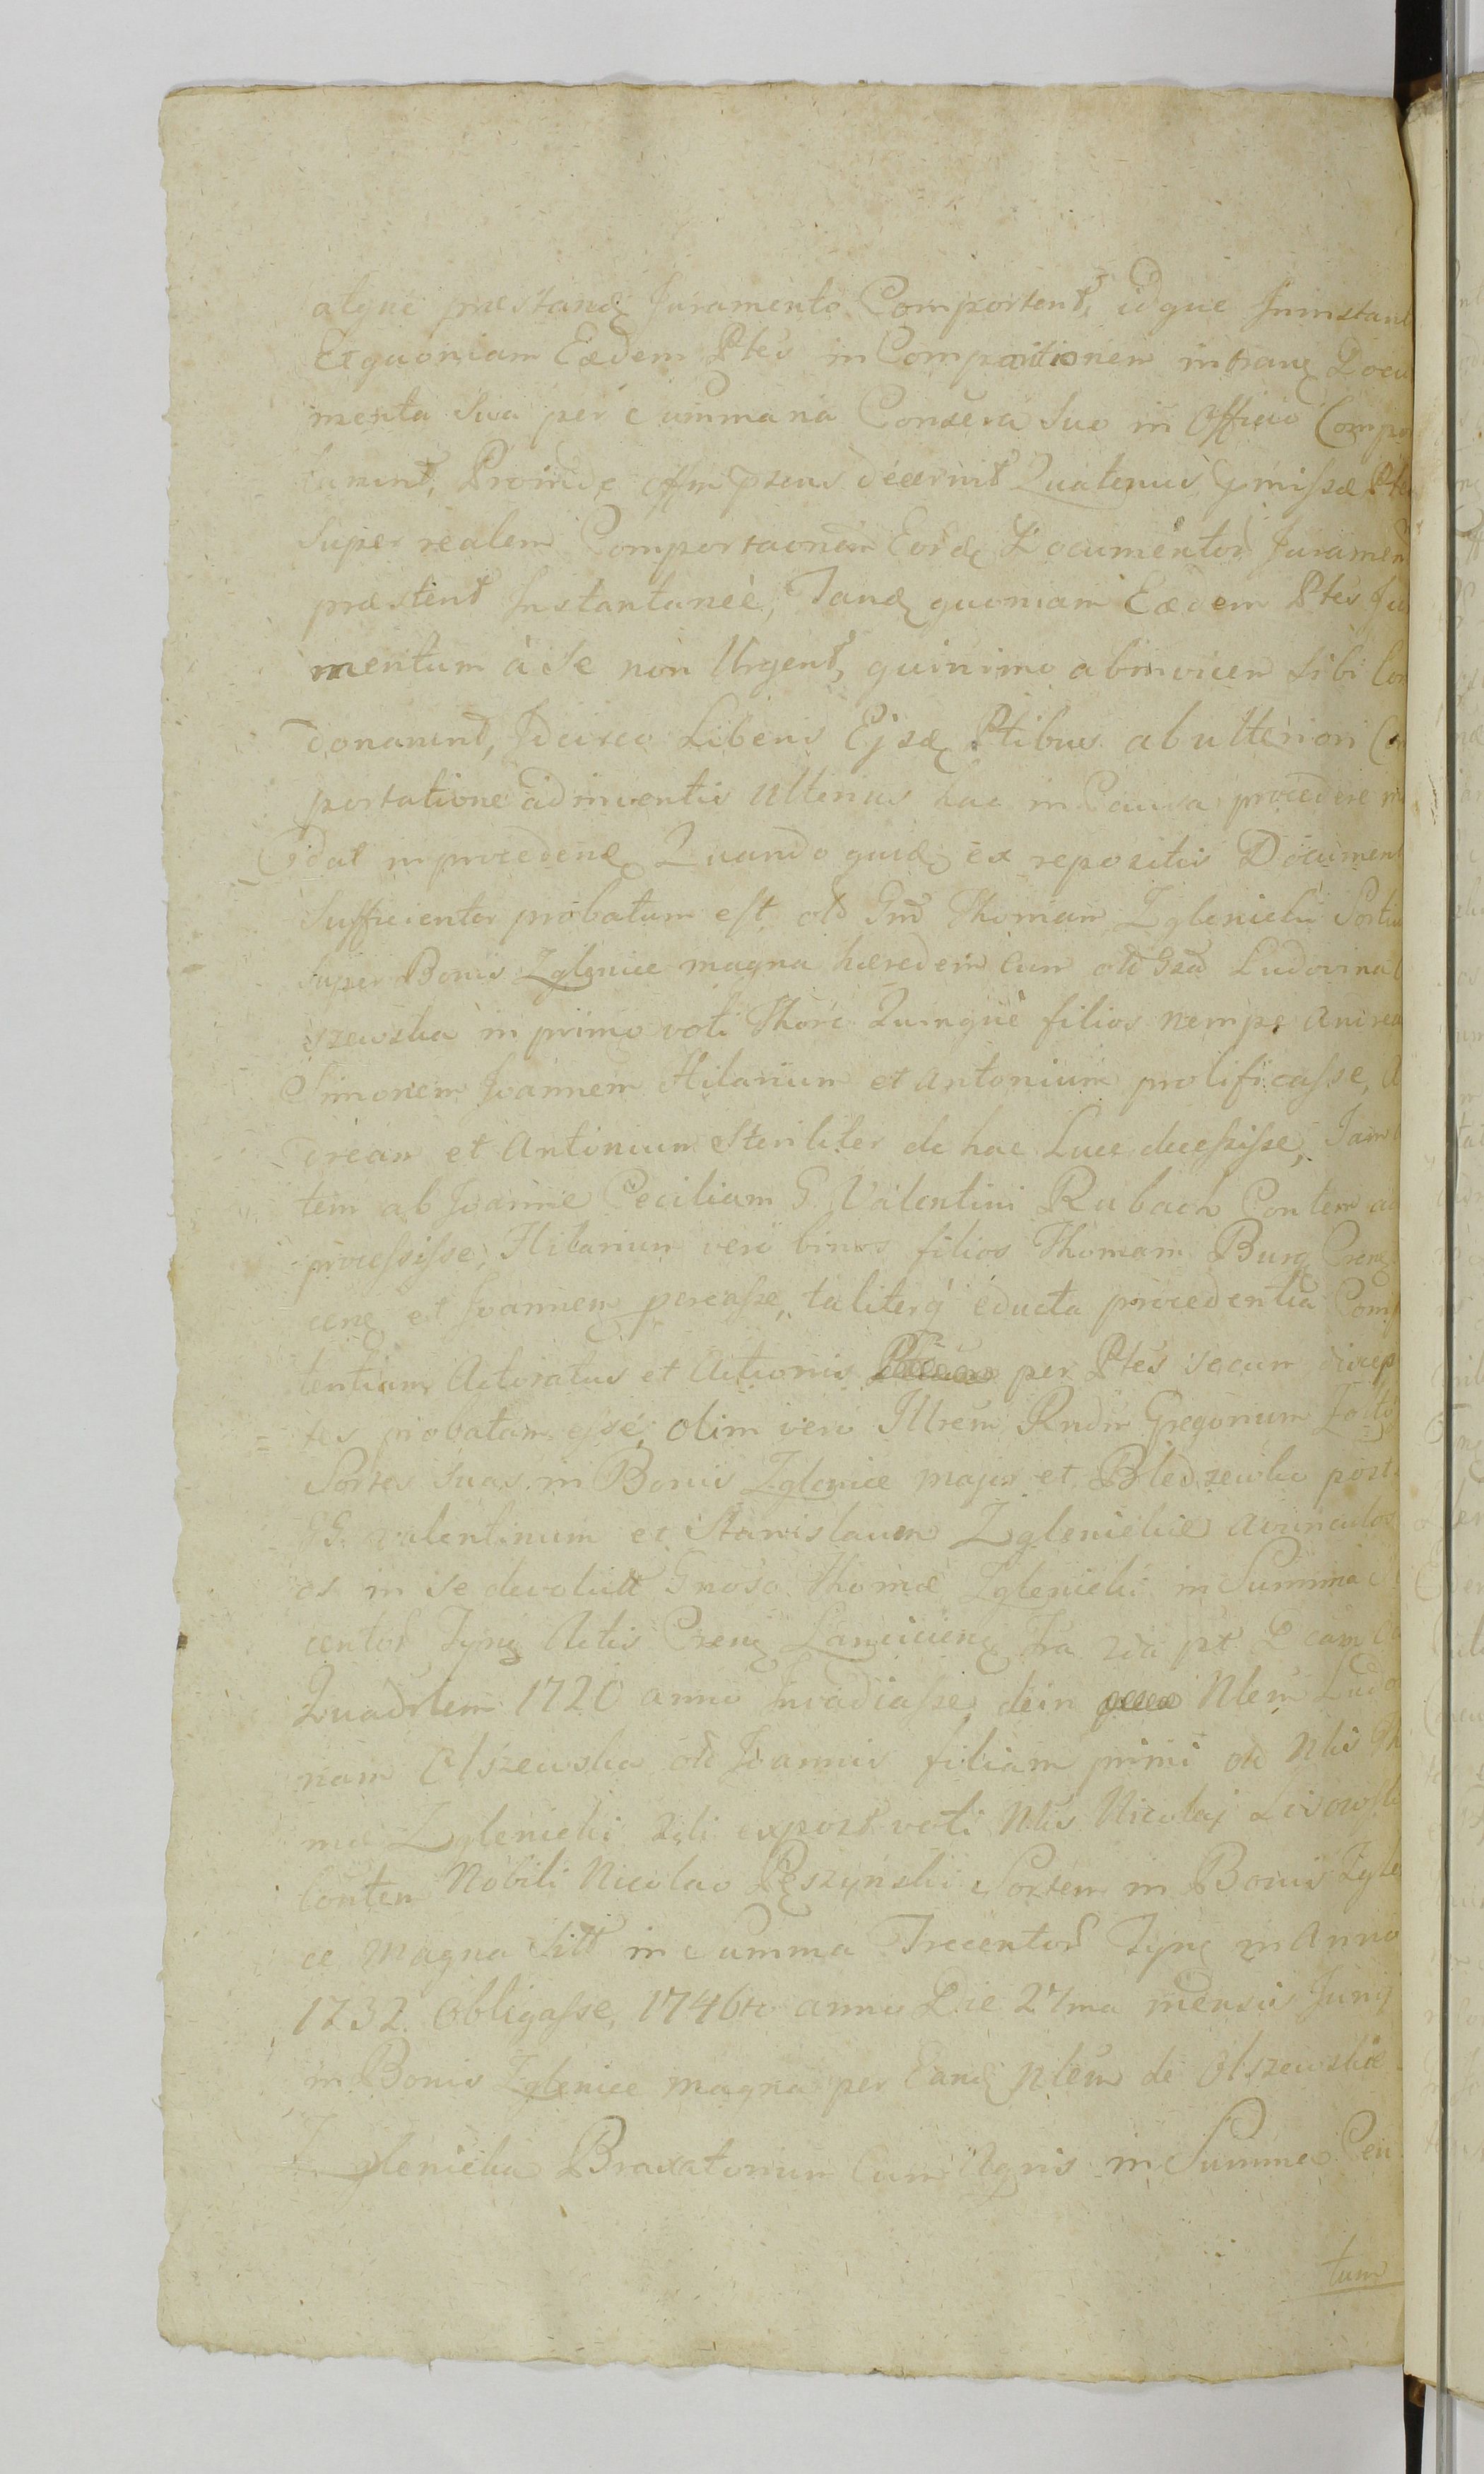 atque præstand Juramento Comportent, idque Ininstant
Et quoniam Eædem Ptes in Comparitionem intrans Docu
menta Sua per cummana Consera sua in Officio Compo
tarunt, Proinde Offm ptens decernit Quatenus pmissæ Ptes
super realem Comportaonem Eord Documentor Juramen
præstent Instantaneè, Tand quoniam Eædem Ptes Jur
mentum à Se non Urgent, quinimo abinvicem sibi Con
donarunt, Idcirco Liberis Ejsd Ptibus ab ulteriori Com
portatione adinventis Ulterius hac in Causa procedere
in procedend Quando quid ex repositis Document
Sufficienter probatum est, old Gnd Thomam Zglenicki Sortis
super Bonis Zglenice magna hæredem cum old Gsa Ludovina
szewska in primo voti Thoro Quinque filios nempe Andrea
Simonem Joannem Hilarium et Antonium prolificasse, A
dream et Antonium Steriliter de hac Luce decessisse, Jam
tem ab Joanne Ceciliam G. Valentini Rubach Contem
processisse, Hilarium verò binos filios Thomam Burg Cren
cens et Joannem pereasse, taliterq educta procedentia Comp
tentiam Actoratus et Actionis per Ptes secum discep
tes probatam esse, olim vero Illrem Rndm Gregorium Zolto
Sortes suas in Bonis Zglenice major et Bledzewko post
GG. Valentinum et Stanislaum Zglenickie avunculos
os in se devolutt Gnoso Thomæ Zglenicki in Summa
centor Tynf Actis Crens Lanciciens Fra 2da pt D cam
Quadrlem 1720 anno Invadiasse, dein Nlem Ludo
nam Olszewska old Joannis filiam primi old Nlis Th
mæ Zglenicki 2di expost voti Nlis Nicolaj Lisowski
Conten Nobili Nicolao Pęszyński Sortem in Bonis Zgle
ce Magna Sitt in Summa Trecentor Tynf in Anno
1732. Obligasse, 1746to anno Die 27ma mensis Junij
in Bonis Zglenice magna per Eand Nlem de Olszewskie
Zglenicka Braxatorium Cum Agris in Summa Cen
tum